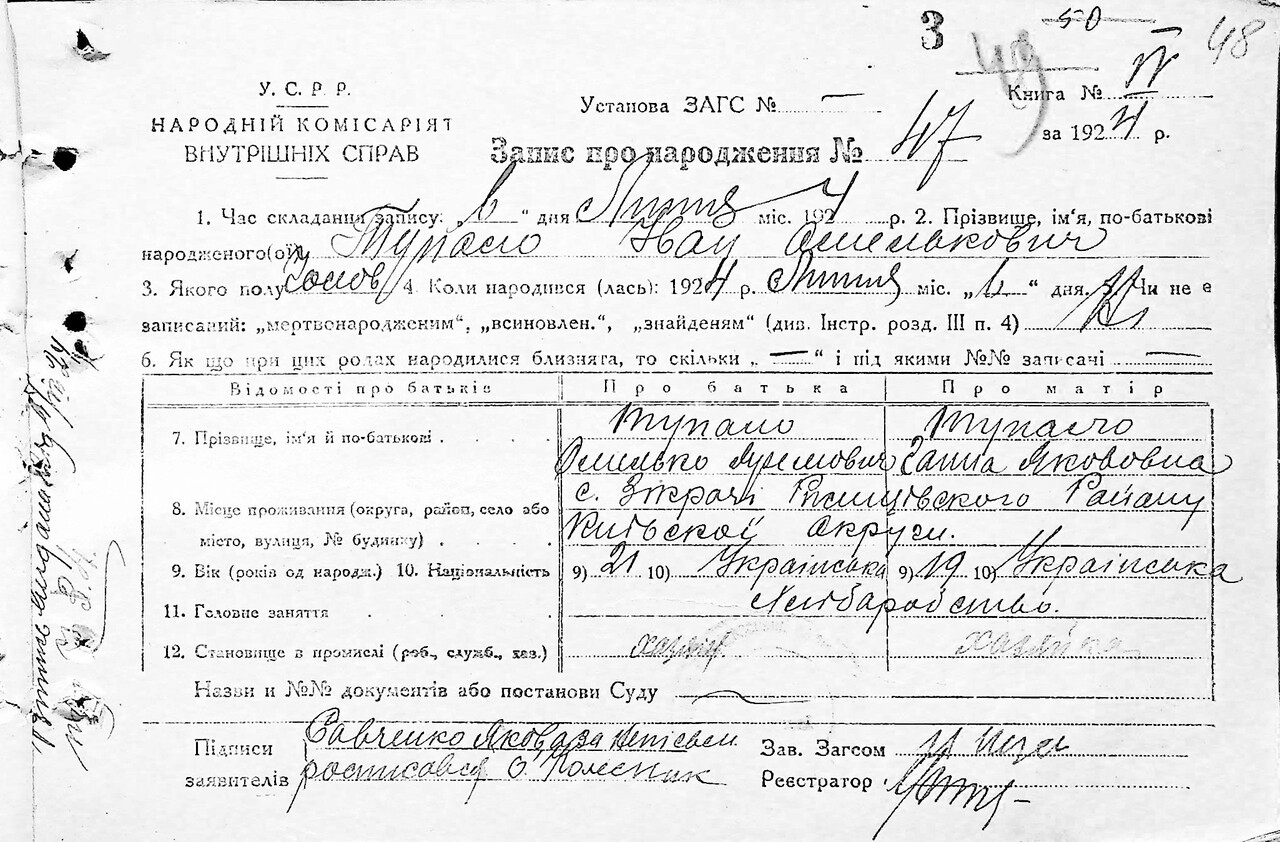 3 50 48
49
У. С. Р. Р.
НАРОДНІЙ КОМІСАРІЯТ
ВНУТРІШНІХ СПРАВ
Установа ЗАГС № —
Книга № IV
за 1924 р.
Запис про народження № 47
1. Час складання запису: „6“ дня Липня міс. 1924 р. 2. Прізвище, ім'я, по-батькові
народженого(ої) Тупало Іван Омелькович
3. Якого полу чолов 4. Коли народився (лась): 1924 р. Липня міс. „6“ дня. 5. Чи не є
записаний: „мертвонародженим“, „всиновлен.“, „знайденям“ (див. Інстр. розд. III п. 4) Ні
6. Як що при цих родах народилися близнята, то скільки „—“ і під якими №№ записані —
Відомості про батьків Про батька Про матір
7. Прізвище, ім'я й по-батькові Тупало Тупало
Омелько Яремович Ганна Яковівна
8. Місце проживання (округа, район, село або с. Зікрачі Ржищівского Району
місто, вулиця, № будинку) Київскої Округи.
9. Вік (років од народж.) 10. Національність 9) 21 10) Українська 9) 19 10) Українська
11. Головне заняття Хліборобство.
12. Становище в промислі (роб., служб., хаз.) хазяїн хазяйка
Назви и №№ документів або постанови Суду —
Підписи Савченко Яков а за неписьм
заявителів росписовся О Колесник
Зав. Загсом
Реєстратор